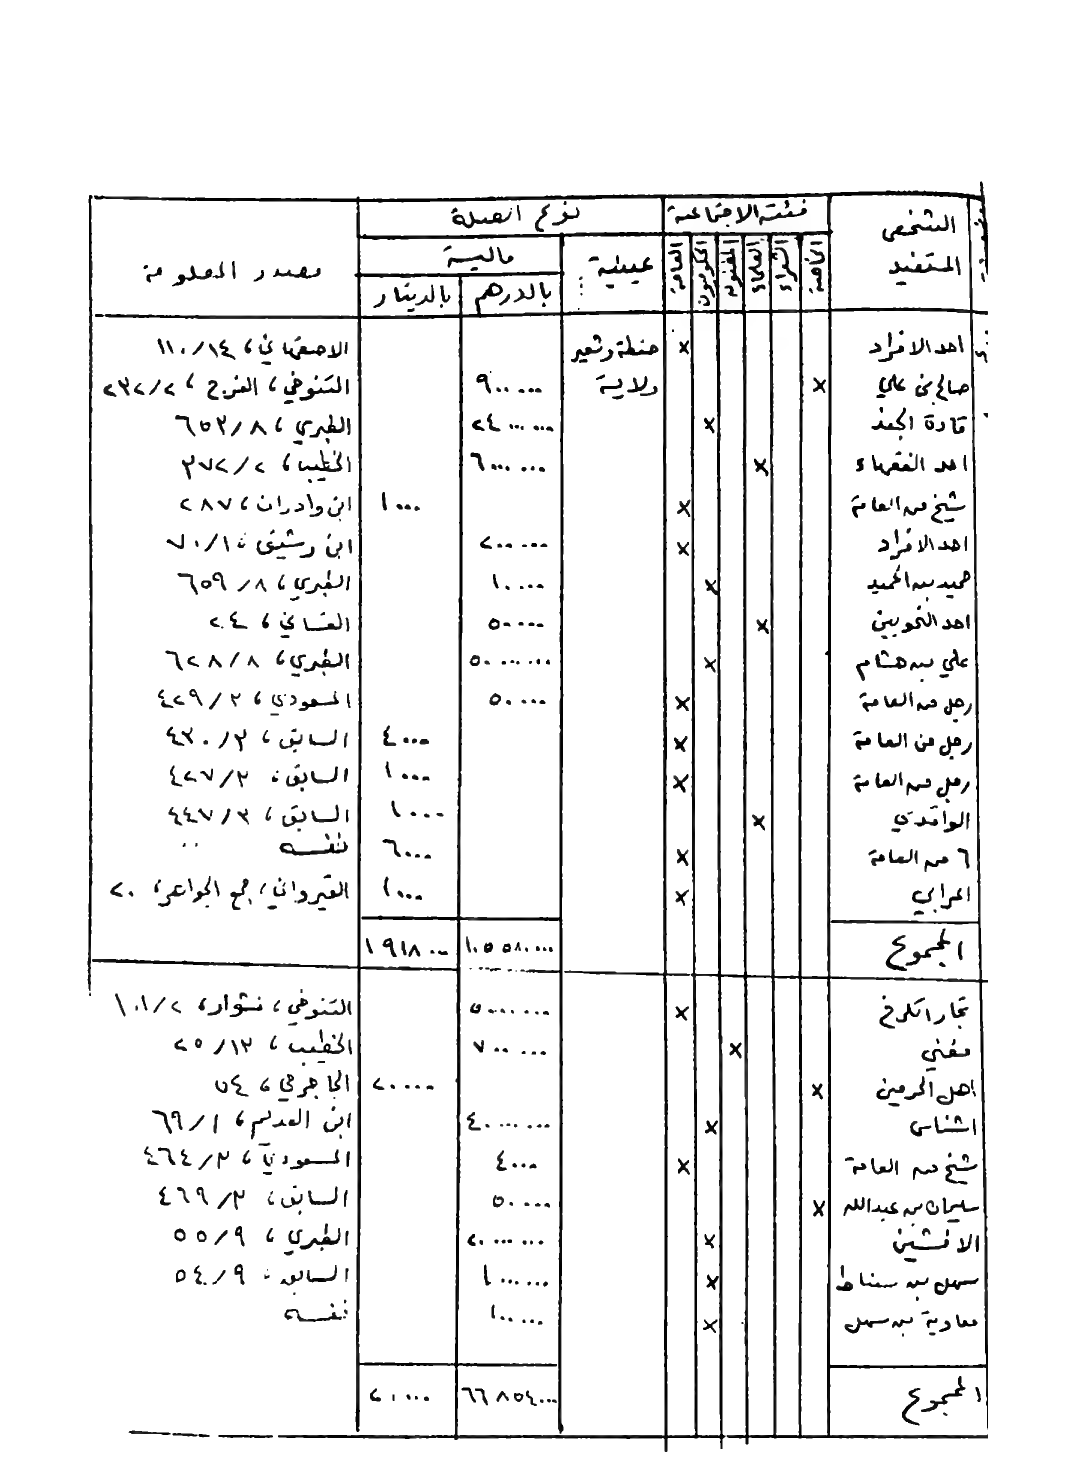 الشخص المستفيد | فئته الاجتماعية | نوع الصلة | مصدر المعلومة
الخاصة | الشعراء | العلماء | المغنون | الحكوميون | العامة | عينية | مالية
بالدرهم | بالدينار
احد الافراد | × | حنطة وشعير | الاصفهاني، ١١٠/١٤
صالح بن علي | × | ولاية | ٩٠٠٠٠٠ | التنوخي، الفرج، ٢٣٢/٢
قادة الجند | × | ٢٤٠٠٠٠٠ | الطبري، ٦٥٢/٨
احد الفقهاء | × | ٦٠٠٠٠٠٠ | الخطيب، ٣٧٢/٢
شيخ من العامة | × | ١٠٠٠ | ابن وادران، ٢٨٧
احد الافراد | × | ٢٠٠٠٠٠ | ابن رشيق، ٧٠/١
حميد بن الحميد | × | ١٠٠٠٠ | الطبري، ٦٥٩/٨
احد النحويين | × | ٥٠٠٠٠ | الغساني، ٢٠٤
علي بن هشام | × | ٥٠٠٠٠٠٠٠ | الطبري، ٦٢٨/٨
رجل من العامة | × | ٥٠٠٠٠ | المسعودي، ٤٢٩/٣
رجل من العامة | × | ٤٠٠٠ | السابق، ٤٣٠/٣
رجل من العامة | × | ١٠٠٠ | السابق، ٤٢٧/٣
الواقدي | × | ١٠٠٠٠ | السابق، ٤٤٧/٣
٦ من العامة | × | ٦٠٠٠ | نفسه
اعرابي | × | ١٠٠٠ | القيرواني، جمع الجواهر، ٢٠
المجموع | ١٠٥٥٨٠٠٠٠ | ١٩١٨٠٠٠
تجار الكرخ | × | ٥٠٠٠٠٠٠ | التنوخي، نشوار، ١٠١/٢
مغني | × | ٧٠٠٠٠٠ | الخطيب، ٢٥/١٣
اهل الحرمين | × | ٢٠٠٠٠ | الجاجرمي، ٥٤
اشناس | × | ٤٠٠٠٠٠٠٠ | ابن العديم، ٦٩/١
شيخ من العامة | × | ٤٠٠٠ | المسعودي، ٤٦٤/٣
سليمان بن عبدالله | × | ٥٠٠٠٠ | السابق، ٤٦٩/٣
الافشين | × | ٢٠٠٠٠٠٠٠ | الطبري، ٥٥/٩
سهل بن سنباط | × | ١٠٠٠٠٠٠ | السابق، ٥٤/٩
معاوية بن سهل | × | ١٠٠٠٠٠ | نفسه
المجموع | ٦٦٨٥٤٠٠٠ | ٢١٠٠٠٠